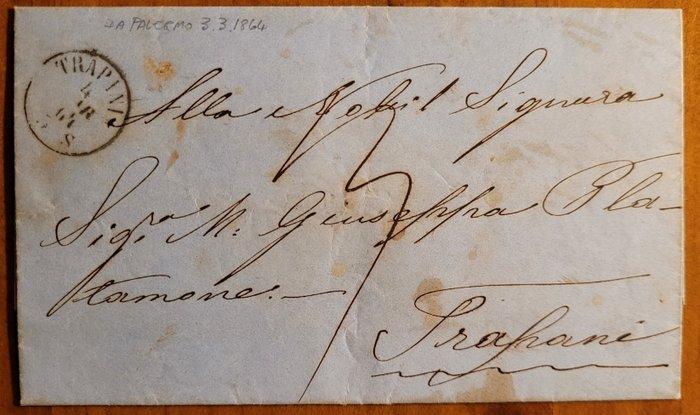 DA PALERMO 3.3.1864
TRAPANI
4
64
S
Alla Nobil Signora
Sigra M. Giuseppa Pla-
tamone. —
Trapani